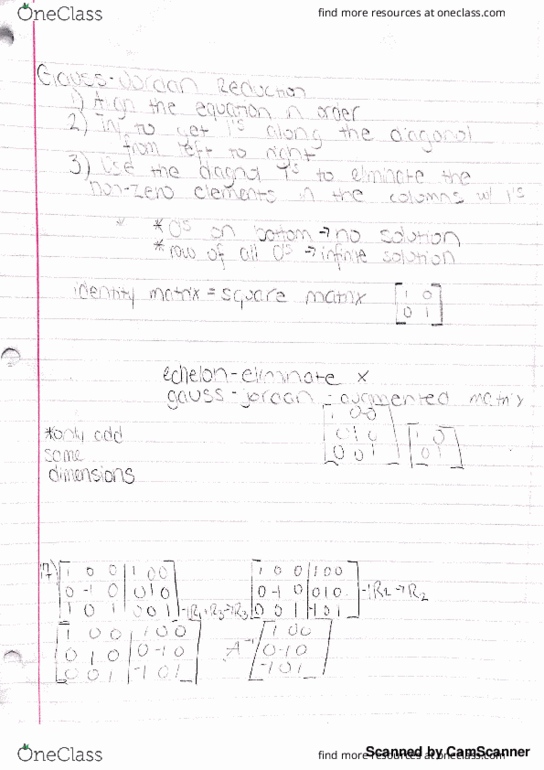 OneClass
find more resources at oneclass.com
Gauss-Jordan Reduction
1) Align the equation in order
2) Try to get 1's along the diagonal
from left to right
3) Use the diagnol 1's to elminate the
non-zero elements in the columns w/ 1's
* *0's on bottom → no solution
*row of all 0's → infinite solution
identity matrix = square matrix [1 0
0 1]
echelon-eliminate x
gauss-jordan - augmented matrix
[1 0 0
0 1 0
0 0 1] [1 0
0 1]
*only add
same
dimensions
17) [1 0 0 | 1 0 0
0 -1 0 | 0 1 0
1 0 1 | 0 0 1] -1R1+R3→R3
[1 0 0 | 1 0 0
0 -1 0 | 0 1 0
0 0 1 | -1 0 1] -1R2→R2
[1 0 0 | 1 0 0
0 1 0 | 0 -1 0
0 0 1 | -1 0 1]
A⁻¹ [1 0 0
0 -1 0
-1 0 1]
OneClass
find more resources at oneclass.com
Scanned by CamScanner